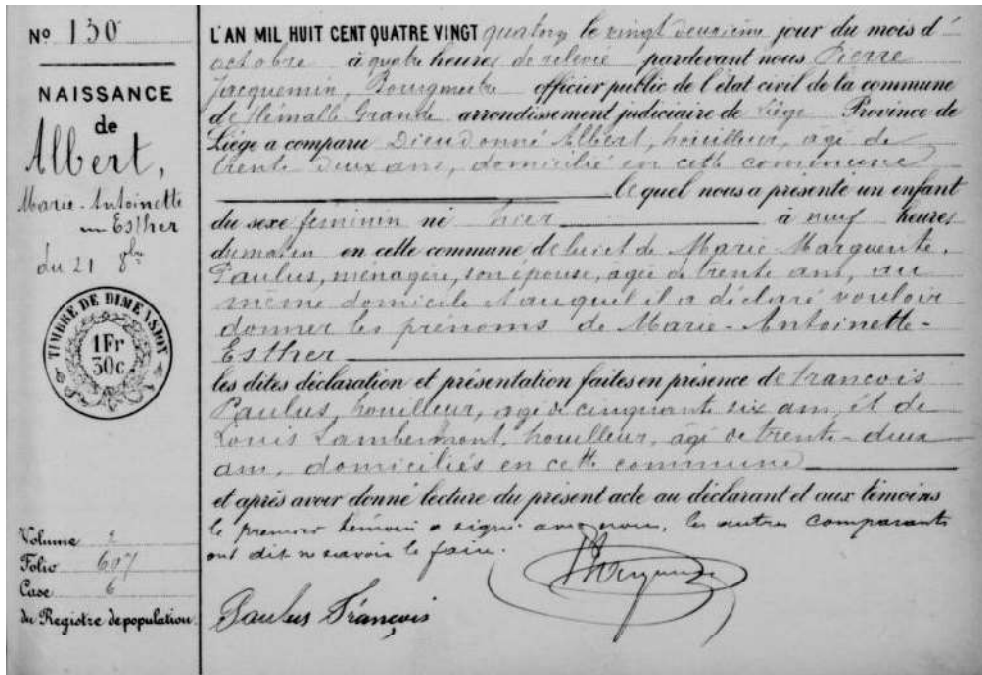 Nº 130
NAISSANCE
de
Albert,
Marie-Antoinette
Esther
du 21 8bre
TIMBRE DE DIMENSION
1Fr
30c
Volume 2
Folio 607
Case 6
du Registre de population.
L'AN MIL HUIT CENT QUATRE VINGT quatorze le vingt deuxième jour du mois d'
octobre à quatre heures de relevée pardevant nous Pierre
Jacquemin, Bourgmestre officier public de l'état civil de la commune
de Flémalle Grande arrondissement judiciaire de Liège Province de
Liège a comparu Dieudonné Albert, houilleur, agé de
trente deux ans, domicilié en cette commune
lequel nous a présenté un enfant
du sexe féminin né hier à neuf heures
du matin en cette commune de lui et de Marie Marguerite
Paulus, ménagère, son épouse, agée de trente ans, au
même domicile et auquel il a déclaré vouloir
donner les prénoms de Marie-Antoinette-
Esther
les dites déclaration et présentation faites en présence de François
Paulus, houilleur, agé de cinquante six ans, et de
Louis Lambermont, houilleur, âgé de trente-deux
ans, domiciliés en cette commune
et après avoir donné lecture du présent acte au déclarant et aux témoins
le premier témoin a signé avec nous, les autres comparants
ont dit ne savoir le faire.
Paulus François